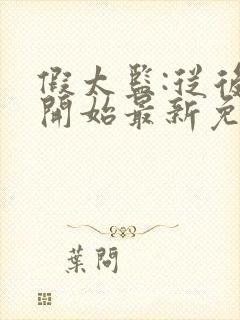 假太監:從後
開始最新免
葉問